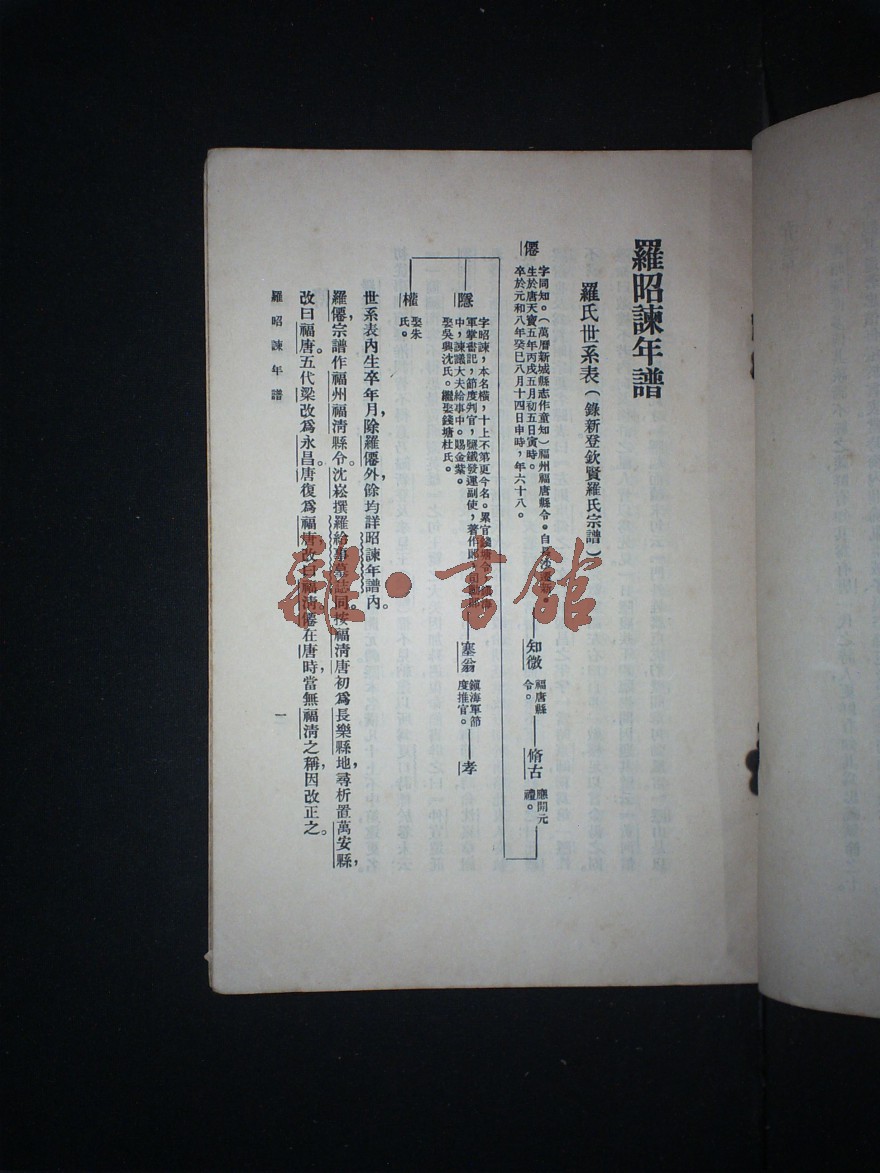 羅昭諫年譜
羅氏世系表(錄新登欽賢羅氏宗譜)
僊
字同知。(萬曆新城縣志作童知)福州福唐縣令。自
生於唐天寶五年丙戌五月初五日寅時。
卒於元和八年癸巳八月十四日申時,年六十八。
知微
福唐縣
令。
脩古
應開元
禮。
隱
字昭諫,本名橫,十上不第更今名。累官錢塘令,
軍掌書記,節度判官,鹽鐵發運副使,著作郎,司勳郎
中,諫議大夫給事中。賜金紫。
娶吳興沈氏。繼娶錢塘杜氏。
塞翁
鎮海軍節
度推官。
孝
權
娶朱
氏。
世系表內生卒年月,除羅僊外,餘均詳昭諫年譜內。
羅僊,宗譜作福州福清縣令,沈崧撰羅給事墓誌同。按福清唐初爲長樂縣地,尋析置萬安縣,
改曰福唐。五代梁改爲永昌。唐復爲福唐,改曰福清。僊在唐時,當無福清之稱,因改正之。
羅昭諫年譜
一
雜·書館